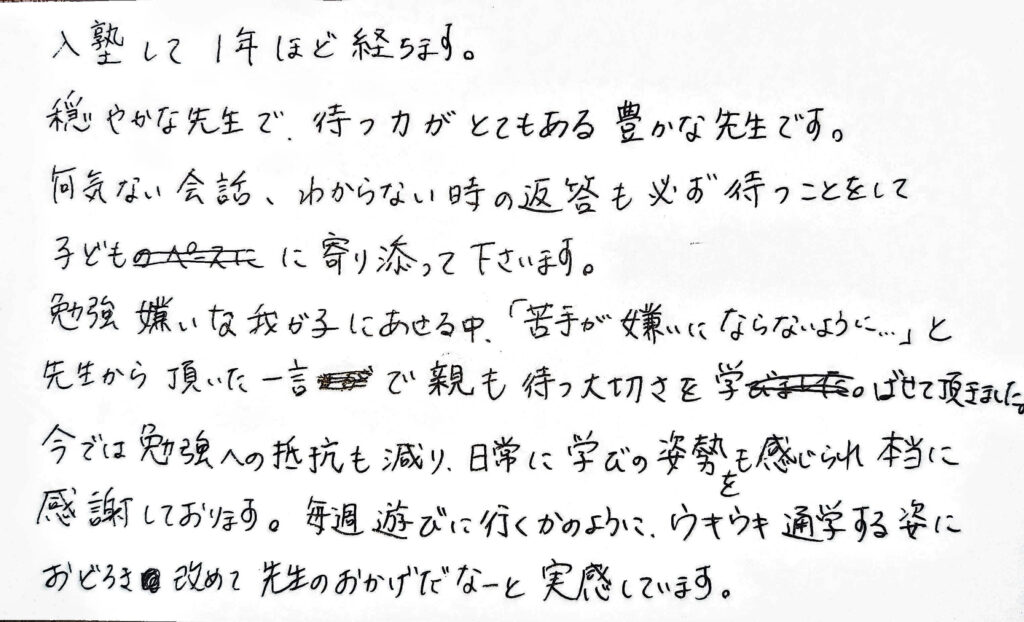 入塾して1年ほど経ちます。
穏やかな先生で、待つ力がとてもある豊かな先生です。
何気ない会話、わからない時の返答も必ず待つことをして
子どものペースにに寄り添って下さいます。
勉強嫌いな我が子にあせる中、「苦手が嫌いにならないように…」と
先生から頂いた一言で親も待つ大切さを学びました。ばせて頂きました。
今では勉強への抵抗も減り、日常に学びの姿勢をも感じられ本当に
感謝しております。毎週遊びに行くかのように、ウキウキ通学する姿に
おどろき改めて先生のおかげだなーと実感しています。